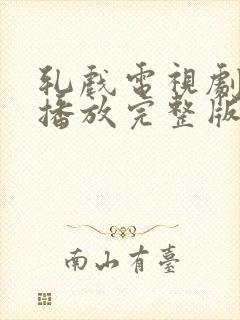 乳戲電視劇
播放完整版
南山有臺